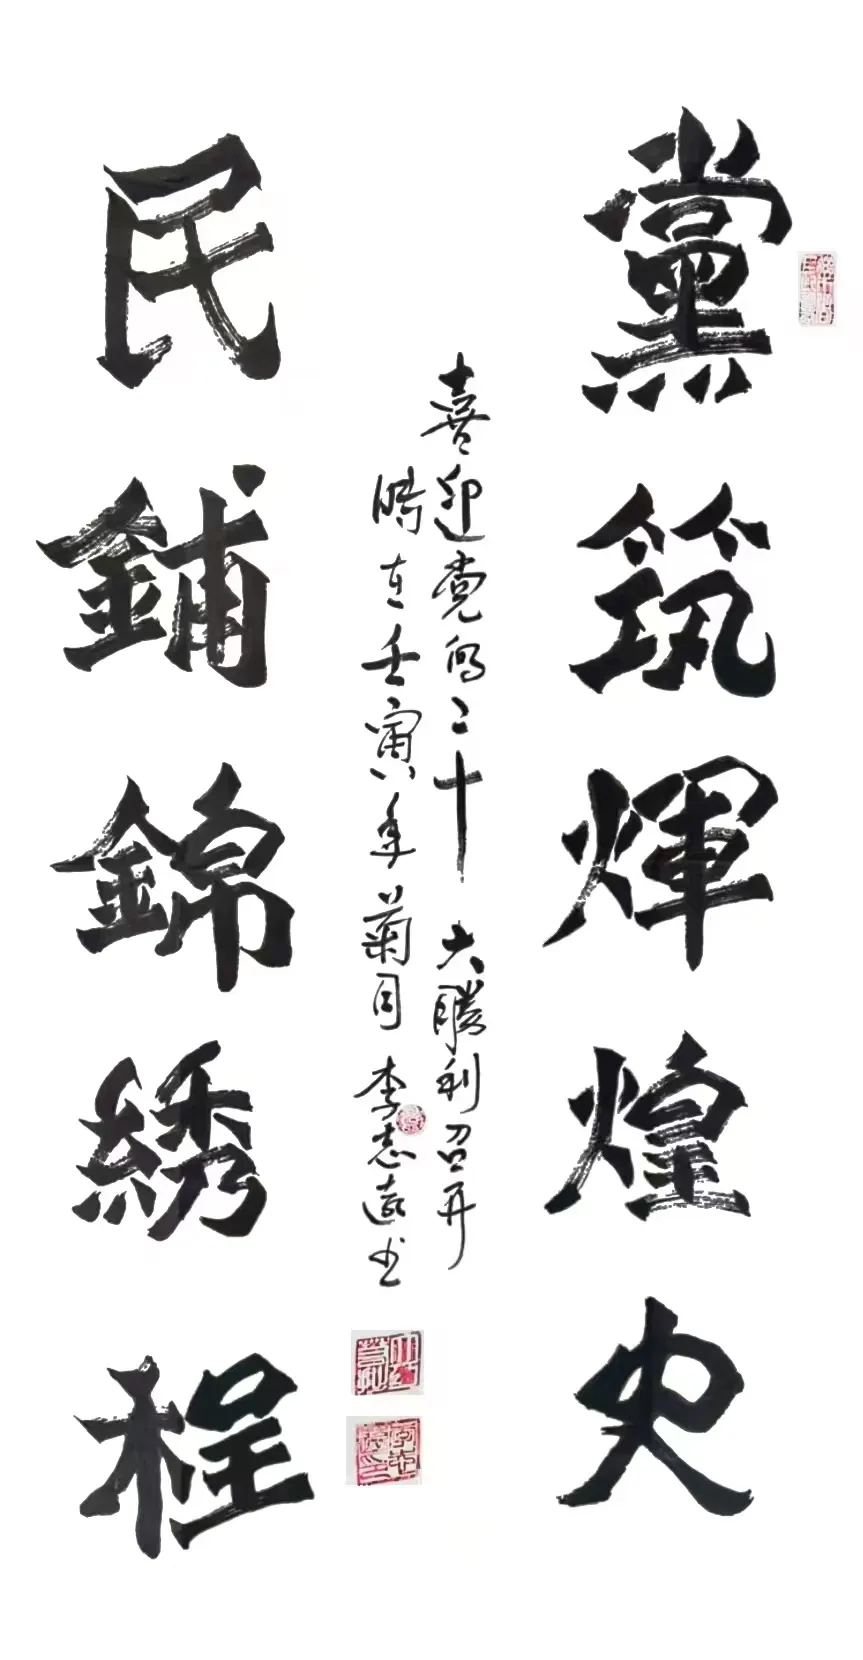 黨筑輝煌史
喜迎党的二十大勝利召开
時在壬寅年菊月李志遠书
民鋪錦綉程